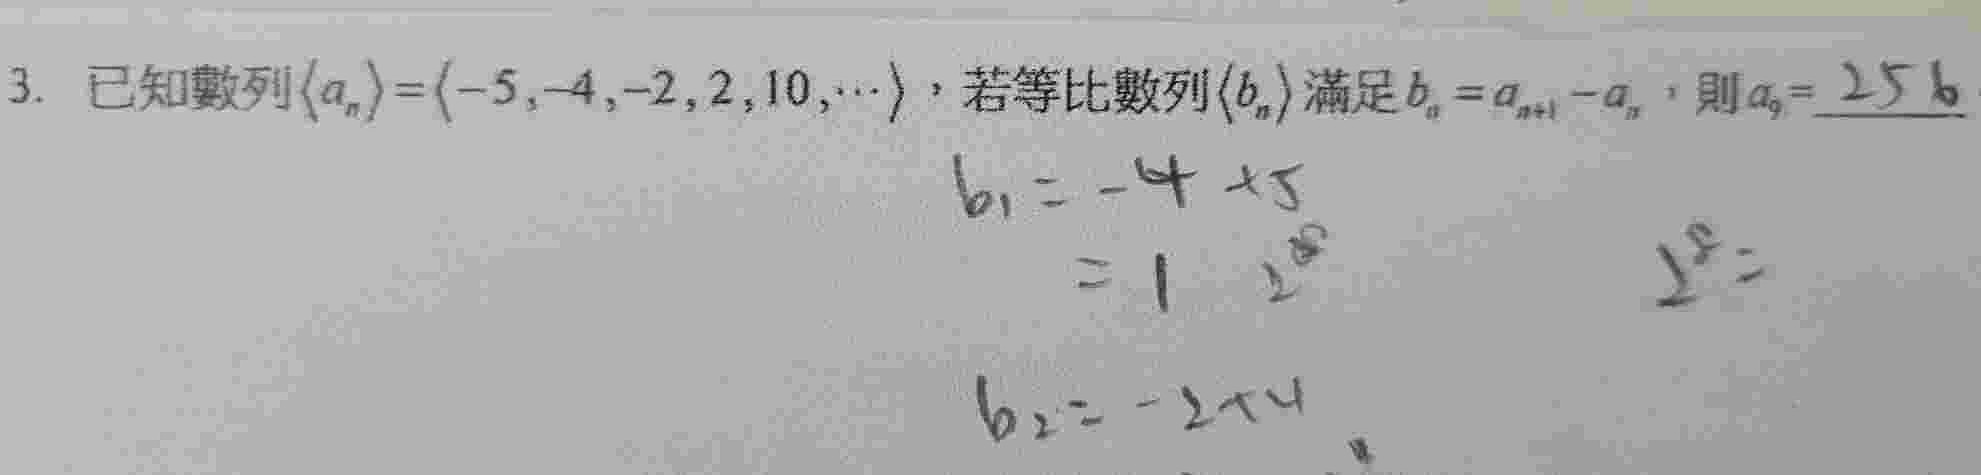 3. 已知數列⟨aₙ⟩=⟨-5,-4,-2,2,10,⋯⟩,若等比數列⟨bₙ⟩滿足bₙ=aₙ₊₁-aₙ,則a₉=256
b₁=-4+5
=1 2⁸ 2⁸=
b₂=-2+4